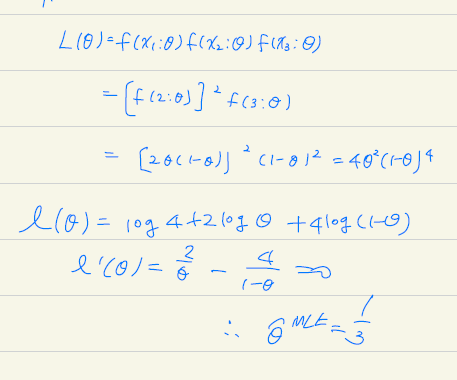 L(θ)=f(x₁:θ)f(x₂:θ)f(x₃:θ)
=[f(2:θ)]² f(3:θ)
= [2θ(1-θ)]² (1-θ)² = 4θ²(1-θ)⁴
l(θ) = log 4+2log θ +4log(1-θ)
l'(θ) = 2/θ - 4/(1-θ) =0
∴ θ̂ᴹᴸᴱ = 1/3